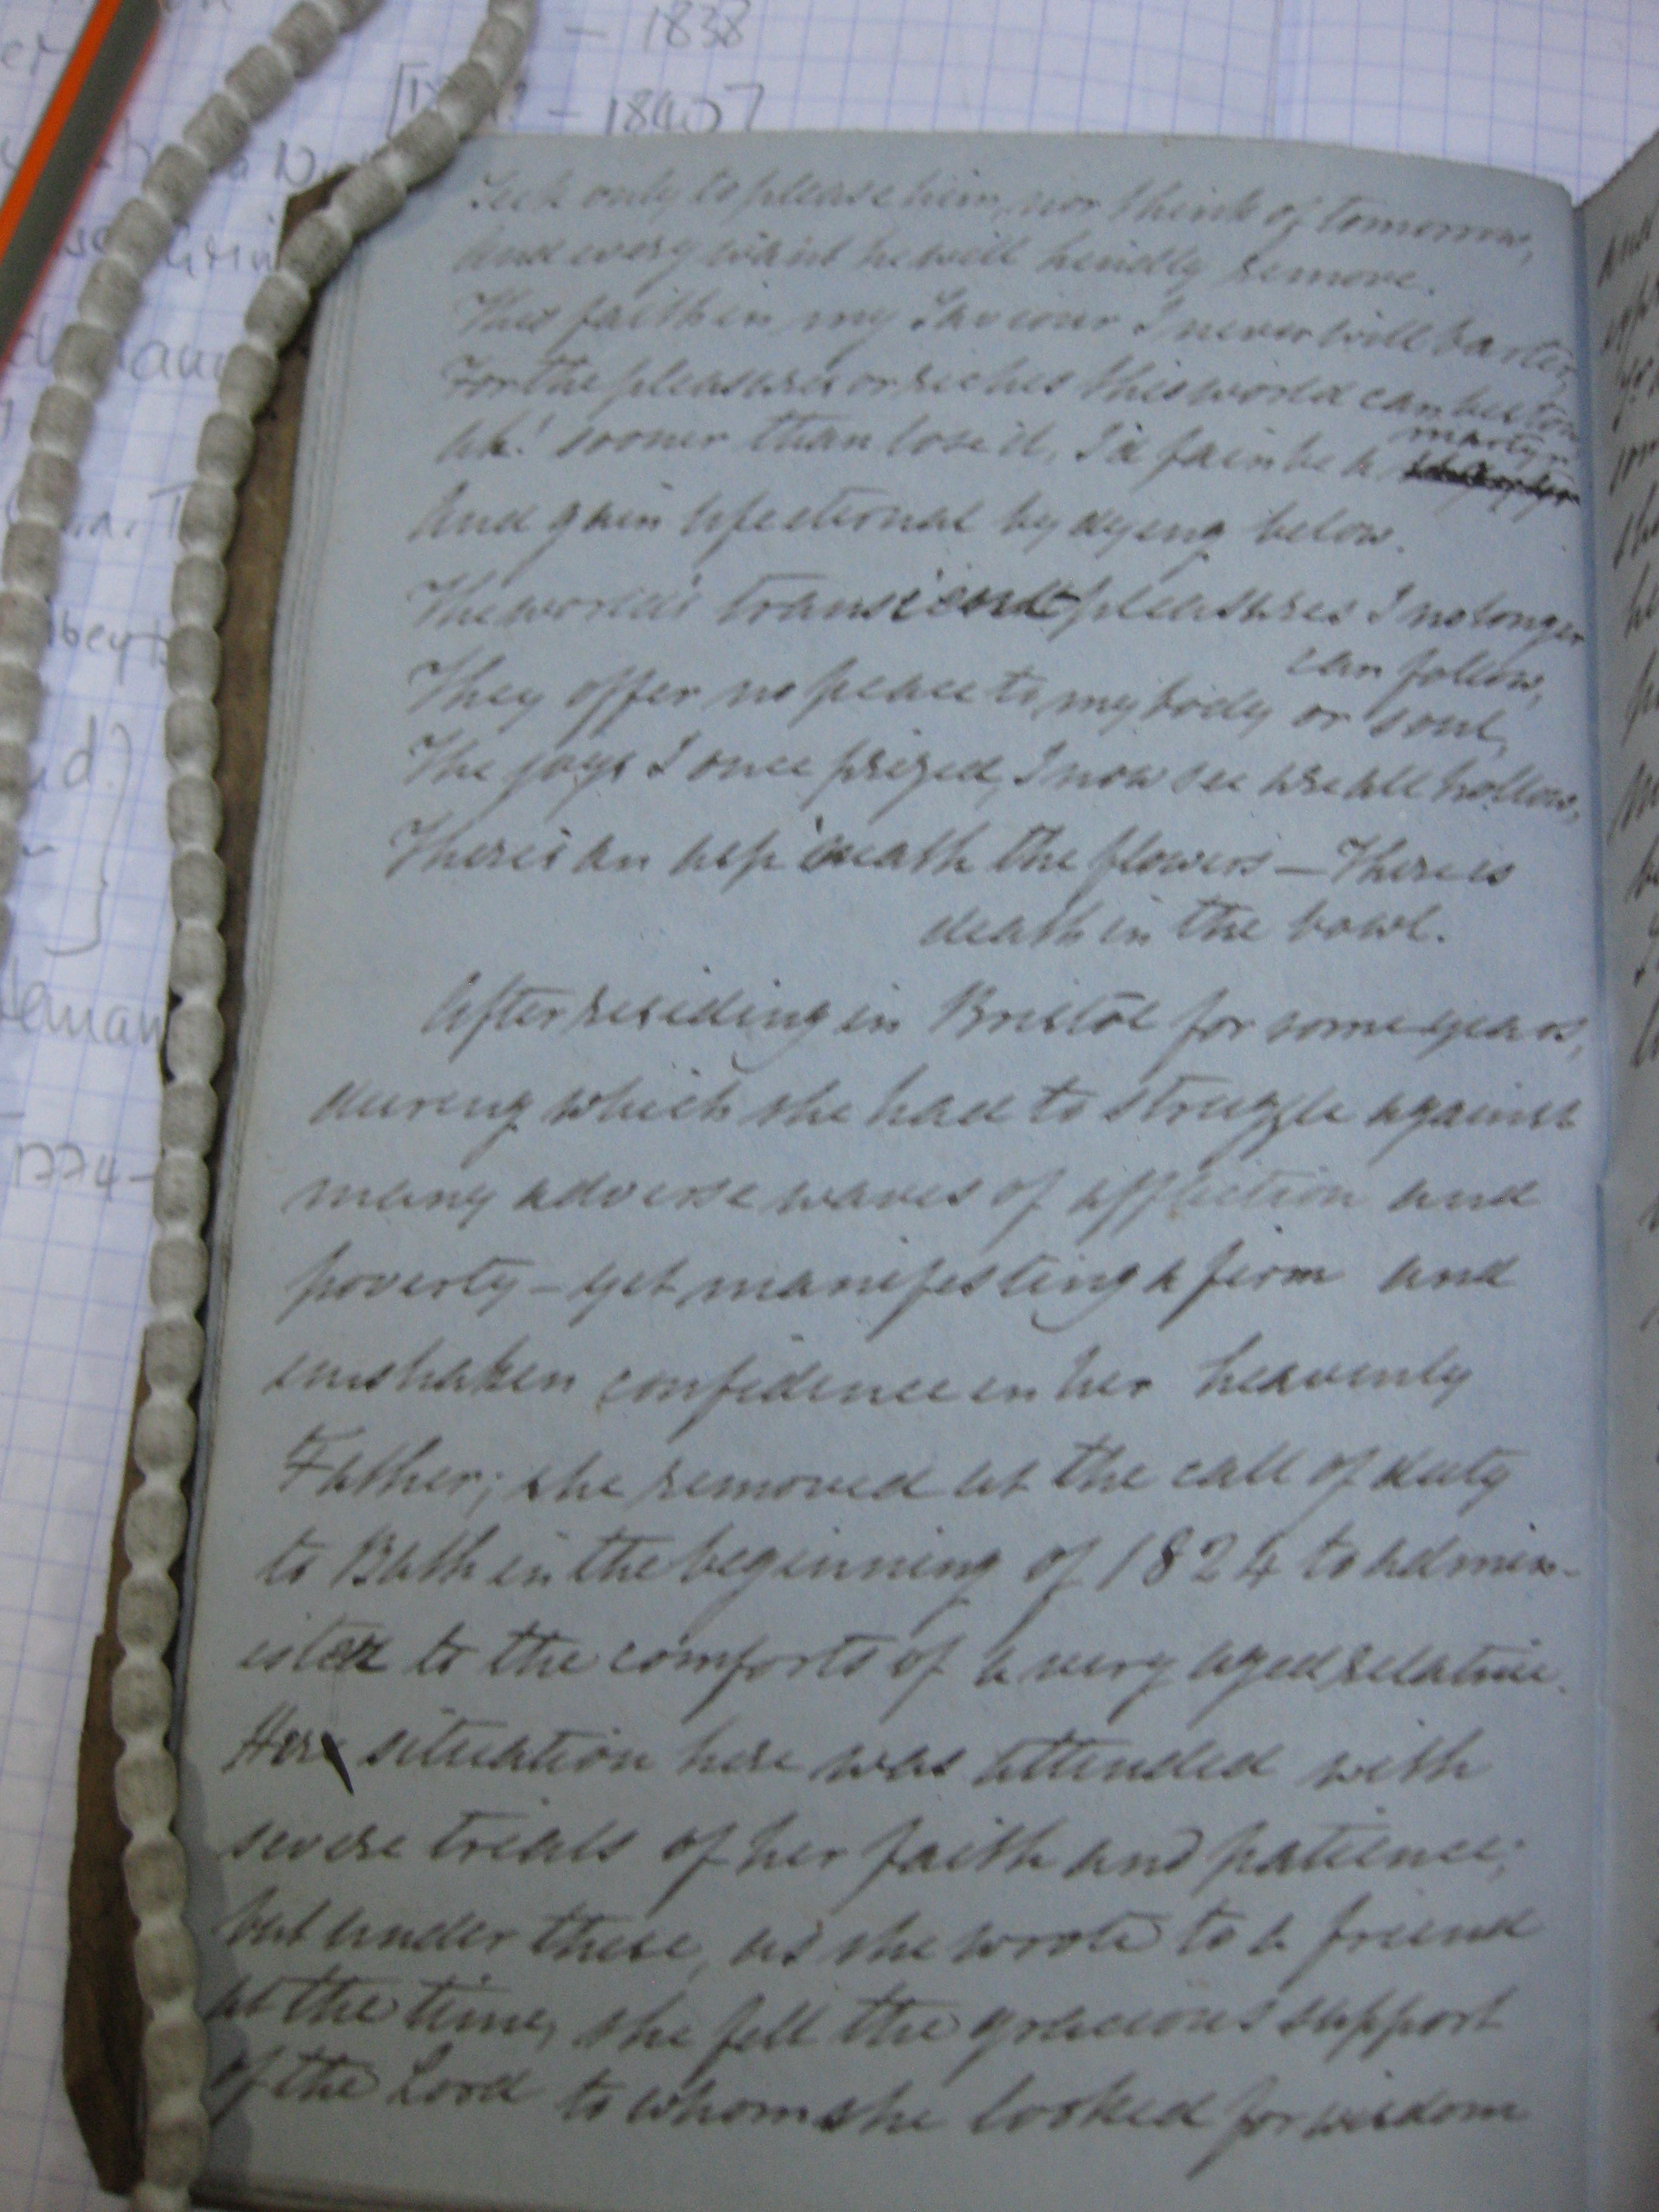 – 1838
– 1840]
Seek only to please him, nor think of tomorrow,
And every want he will kindly remove.
This faith in my Saviour I never will barter,
For the pleasures or riches this world can bestow
Ah! sooner than lose it, I'd fain be a martyr
And gain life eternal by dying below.
The world's transient pleasures I no longer
can follow,
They offer no peace to my body or soul,
The joys I once prized, I now see are all hollow,
There's an asp 'neath the flowers – There is
death in the bowl.
After residing in Bristol for some years,
during which she had to struggle against
many adverse waves of affliction and
poverty – yet manifesting a firm and
unshaken confidence in her heavenly
Father; she removed at the call of duty
to Bath in the beginning of 1824 to admin-
ister to the comforts of a very aged relative.
Her situation here was attended with
severe trials of her faith and patience;
but under these, as she wrote to a friend
at the time, she felt the gracious support
of the Lord to whom she looked for wisdom
d.)
1774–